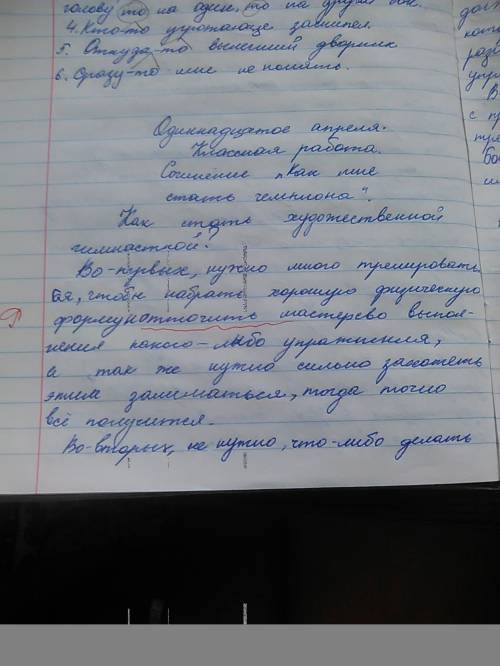 голову то на один, то на другой бок.
4. Кто-то угрожающе зашипел.
5. Откуда-то вышедший дворник
6. Сразу-то мне не понять.
Одиннадцатое апреля.
Классная работа.
Сочинение „Как мне
стать чемпиона".
Как стать художественной
гимнасткой?
Во-первых, нужно много тренировать
ся, чтобы набрать хорошую физическую
форму и отточить мастерсво выпол-
нения какого-либо упражнения,
а так же нужно сильно захотеть
этим заниматься, тогда точно
всё получится.
Во-вторых, не нужно, что-либо делать